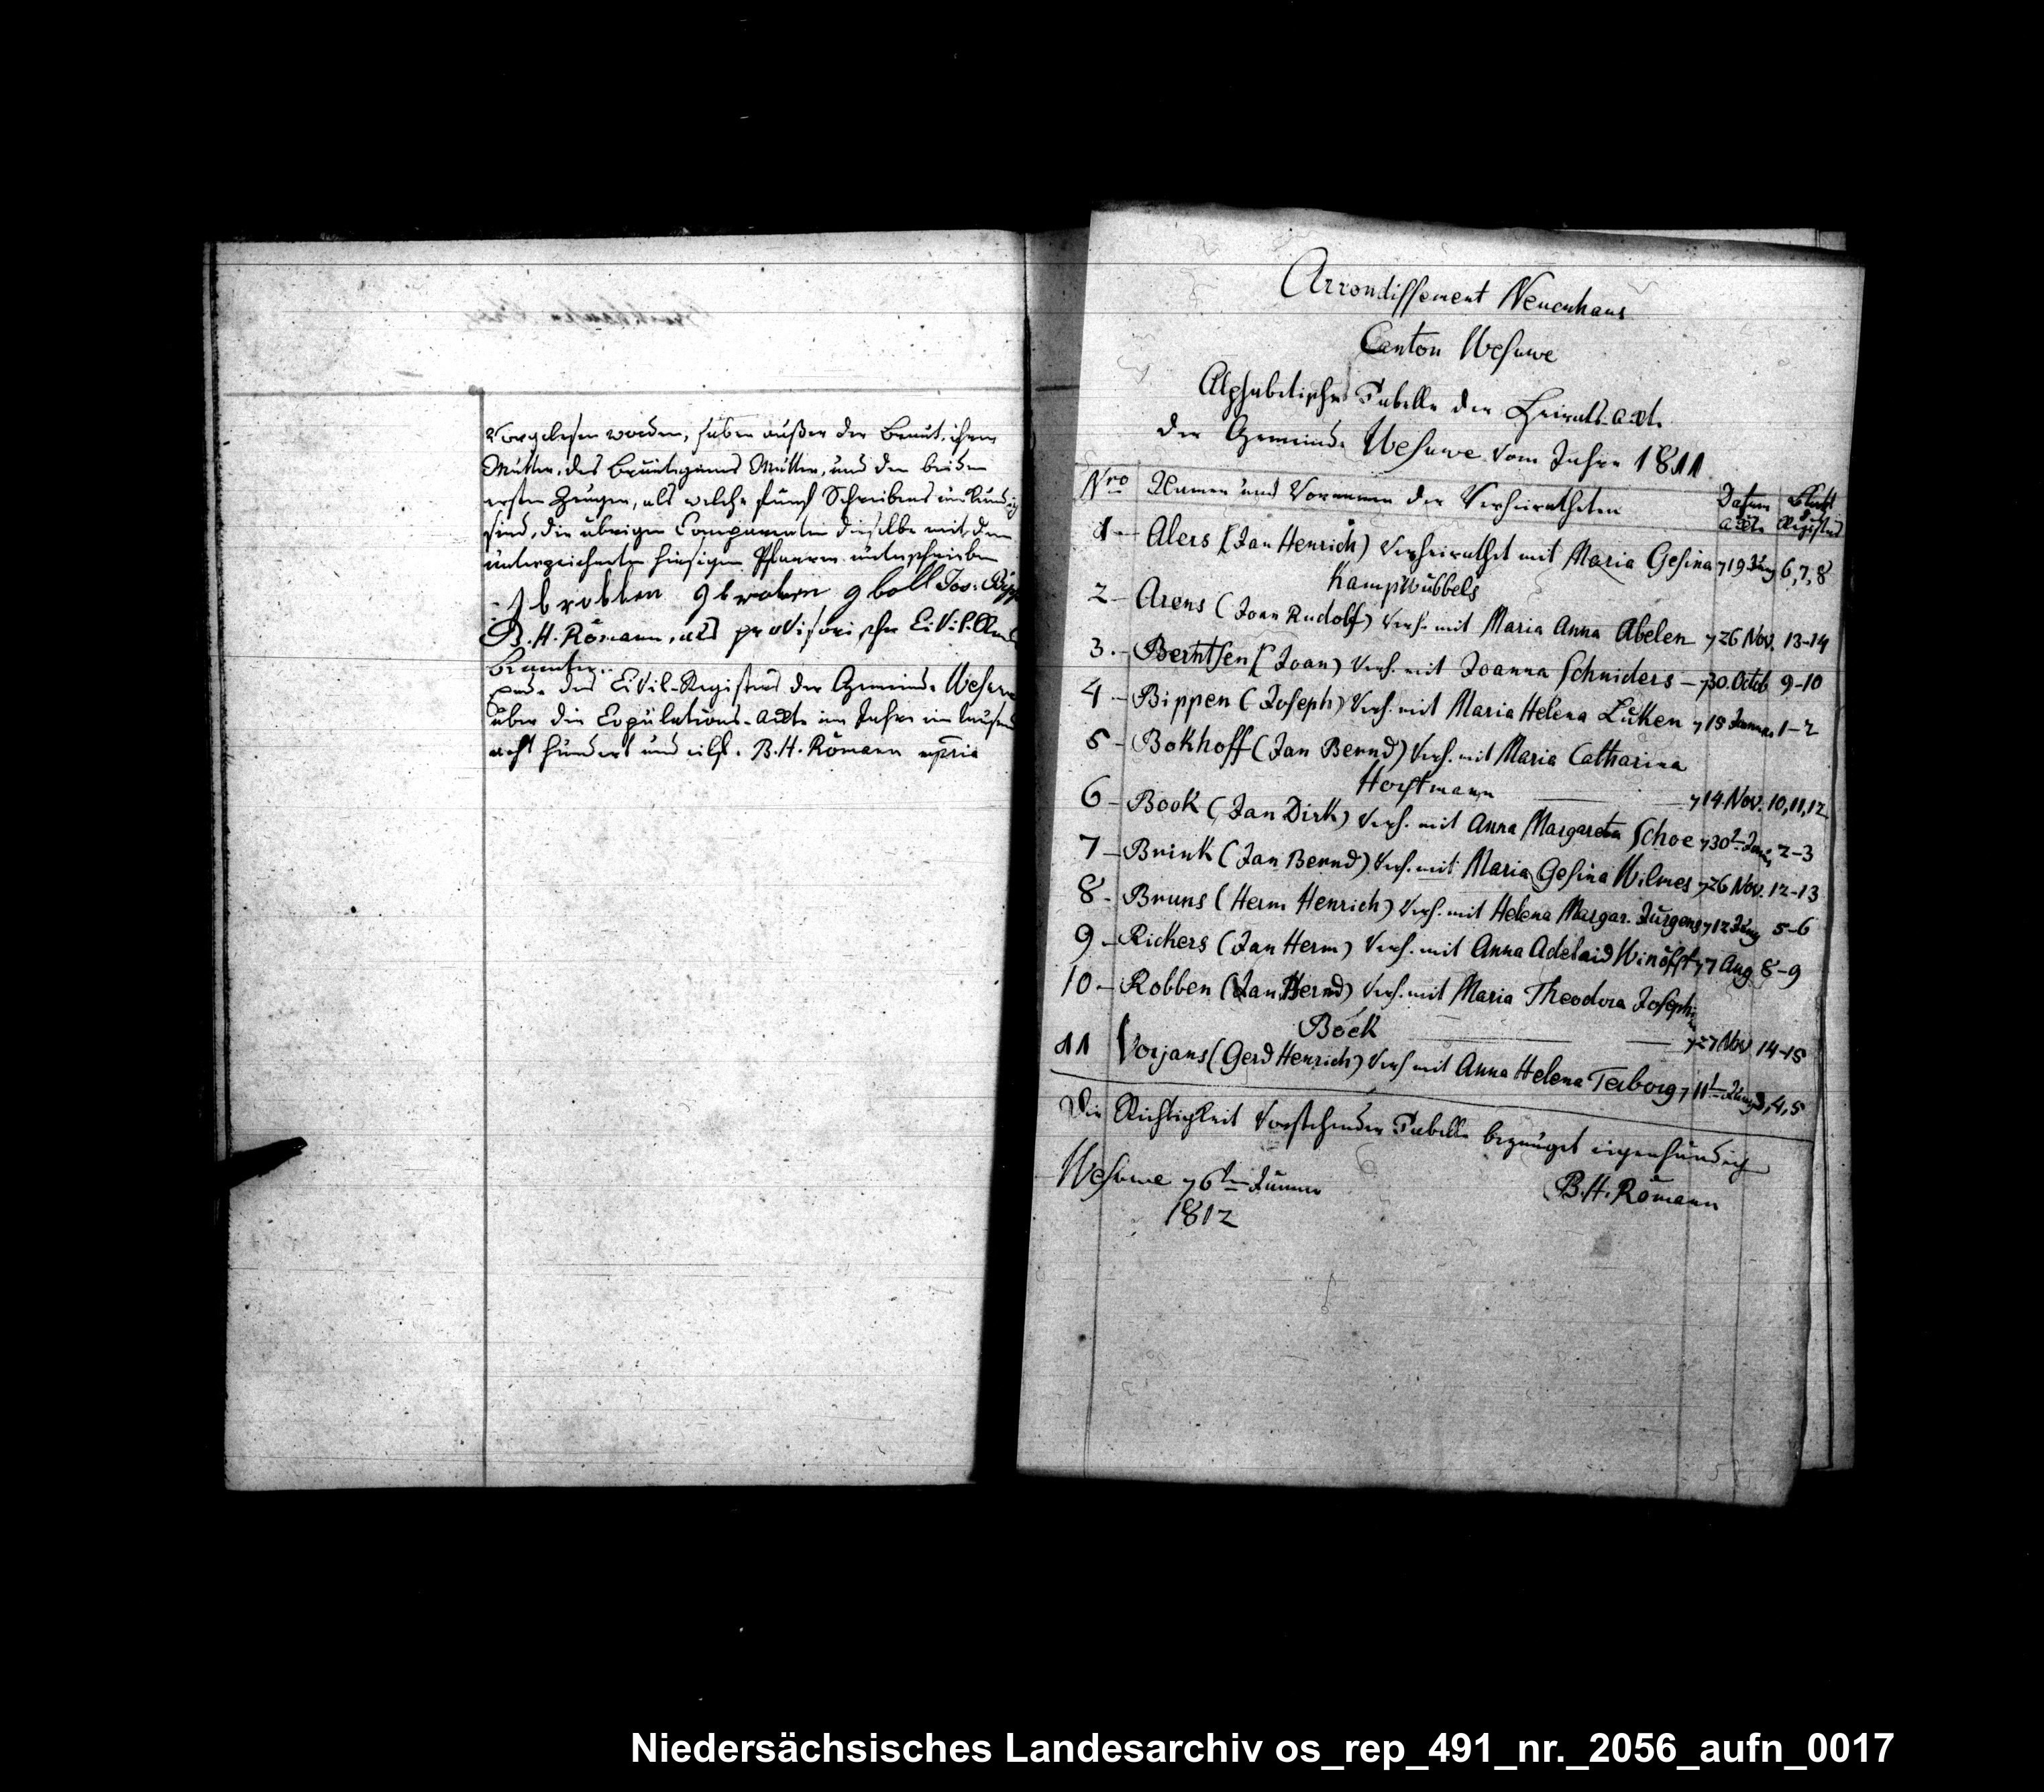 Vorgelesen worden, haben außer der Braut, ihrer
Mutter, des Bräutigams Mutter, und den beiden
ersten Zeugen, als welche sämtl Schreibens unkundig
sind, die übrigen Comparenten dieselbe mit dem
unterzeichneten hiesigen Pfarrer unterschrieben
J b robben g b g boll Jos: Bipp
B. H. Römann, als provisorischer Civil-
beamter.
Ende des Civil-Registers der Gemeinde Wesuwe
über die Copulations-Acte im Jahre ein tausend
acht hundert und eilf. B. H. Römann mpria
Arrondissement Neuenhaus
Canton Wesuwe
Alphabetische Tabelle der Heirats-Acte
der Gemeinde Wesuwe vom Jahre 1811
Nro Namen und Vornamen der Verheiratheten Datum der Acte Blatt des Registers
1 - Alers (Jan Henrich) Verheirathet mit Maria Gesina 19 Juny 6,7,8
Kampwübbels
2 - Arens (Joan Rudolf) Verh. mit Maria Anna Abelen 26 Nov. 13-14
3 - Berntsen (Joan) Verh. mit Joanna Schniders - 30. Octob 9-10
4 - Bippen (Joseph) Verh. mit Maria Helena Lüken 15 Januar 1-2
5 - Bokhoff (Jan Bernd) Verh. mit Maria Catharina
Horstmann 14. Nov. 10,11,12
6 - Book (Jan Dirk) Verh. mit Anna Margareta Schoe 30t 2-3
7 - Brink (Jan Bernd) Verh. mit Maria Gesina Wilmes 26 Nov. 12-13
8 - Bruns (Herm Henrich) Verh. mit Helena Margar. Jürgens 12 Juny 5-6
9 - Rickers (Jan Herm) Verh. mit Anna Adelaid Winöfft 7 Aug 8-9
10 - Robben (Jan Bernd) Verh. mit Maria Theodora Josephina
Böck 27 Nov 14-15
11 Vorjans (Gerd Henrich) Verh mit Anna Helena Terborg 11t Juny 3,4,5
Die Richtigkeit Vorstehender Tabelle bezeuget eigenhändig
Wesuwe 6ten Januar B. H. Römann
1812
Niedersächsisches Landesarchiv os_rep_491_nr._2056_aufn_0017